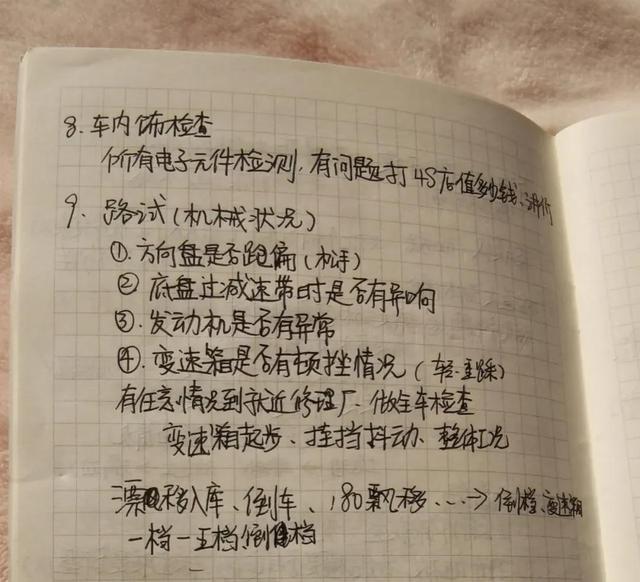 8. 车内饰检查
所有电子元件检测, 有问题打4S店值多少钱、讲价
9. 路试(机械状况)
①. 方向盘是否跑偏(松手)
② 底盘过减速带时是否有异响
③. 发动机是否有异常
④. 变速箱是否有顿挫情况(轻.重踩)
有任意情况到就近修理厂、做全车检查
变速箱起步、挂挡抖动、整体工况
漂移入库、倒车、180飘移...→倒档、变速箱
一档一五档倒档